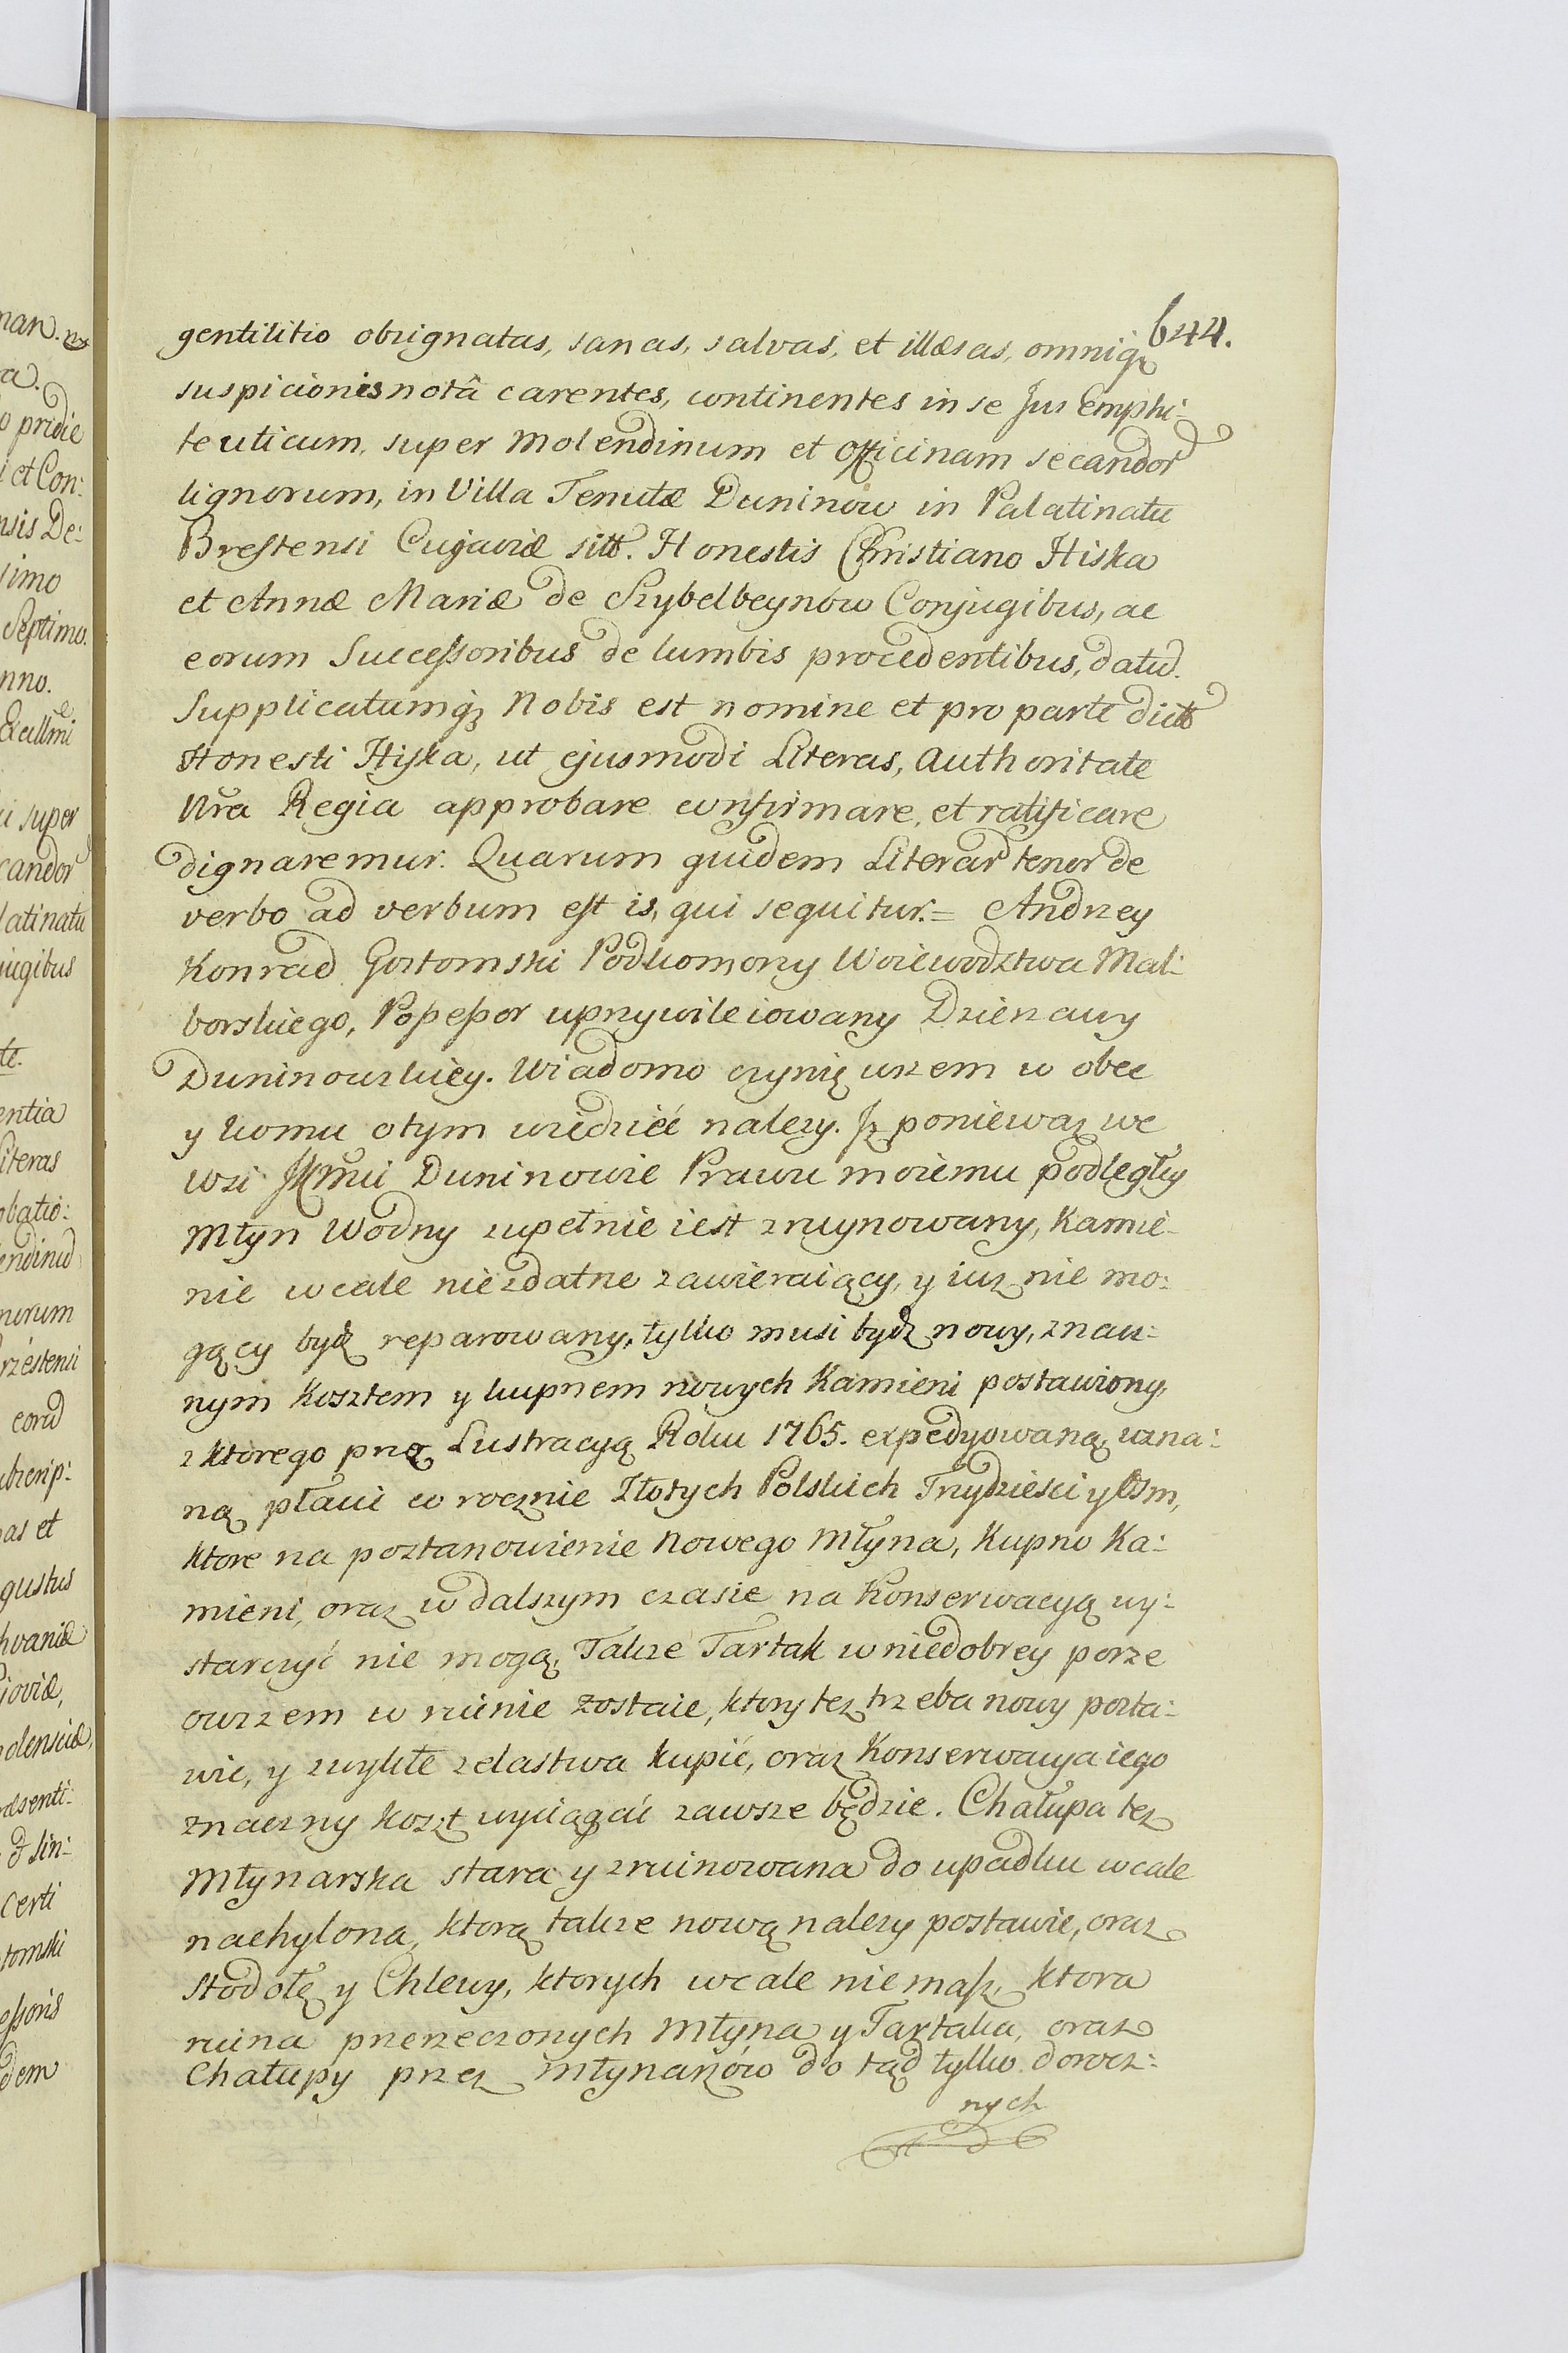 644.
gentilitio obsignatas, sanas, salvas, et illæsas, omniq;
suspicionis notâ carentes, continentes in se Jus Emphi-
teuticum, super Molendinum et Officinam secandor
lignorum, in Villa Tenutæ Duninow in Palatinatu
Brestensi Cujaviæ sitt. Honestis Christiano Hiska
et Annæ Mariæ de Szybelbeynów Conjugibus, ac
eorum Successoribus de lumbis procedentibus, datud.
Supplicatumq; Nobis est nomine et pro parte dictt
Honesti Hiska, ut ejusmodi Literas, Authoritate
Nra Regia approbare confirmare, et ratificare
dignaremur. Quarum quidem Literar tenor de
verbo ad verbum est is, qui sequitur.= Andrzey
Konrad Gostomski Podkomorzy Woiewodztwa Mal-
borskiego, Possessor uprzywileiowany Dzierzawy
Duninowskiey. Wiadomo czynię wszem w obec
y komu o tym wiedzieć nalezy. Jz poniewaz we
wsi JKMci Duninowie Prawu moiemu podległey
Młyn Wodny zupełnie iest zruynowany, Kamie-
nie wcale niezdatne zawieraiący, y iuz nie mo:
gący bydz reparowany, tylko musi bydz nowy, znacz:
nym kosztem y kupnem nowych Kamieni postawiony,
z ktorego przez Lustracyą Roku 1765. expedyowaną, uzna:
ną płaci co rocznie Złotych Polskich Trzydziesci y Osm,
ktore na postanowienie Nowego Młyna, Kupno Ka:
mieni, oraz w dalszym czasie na Konserwacyą wy-
starczyć nie mogą, Takze Tartak w niedobrey porze
owszem w ruinie zostaie, ktory tez trzeba nowy posta:
wic, y zwykłe zelastwa kupić, oraz Konserwacya iego
znaczny koszt wyciągać zawsze będzie. Chałupa tez
Młynarska stara y zruinowana do upadku wcale
nachylona, ktorą takze nową nalezy postawic, oraz
Stodołę y Chlewy, ktorych wcale niemasz, ktora
ruina przerzeczonych Młyna y Tartaka, oraz
Chałupy przez Młynarzów do tąd tylko dorocz:
nych